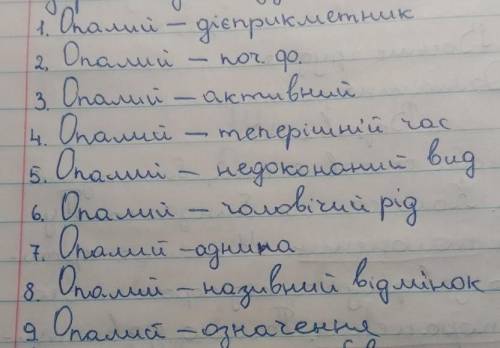 1. Опалий – дієприкметник
2. Опалий – поч. ф.
3. Опалий – активний
4. Опалий – теперішній час
5. Опалий – недоконаний вид
6. Опалий – чоловічий рід
7. Опалий – однина
8. Опалий – називний відмінок
9. Опалий – означення